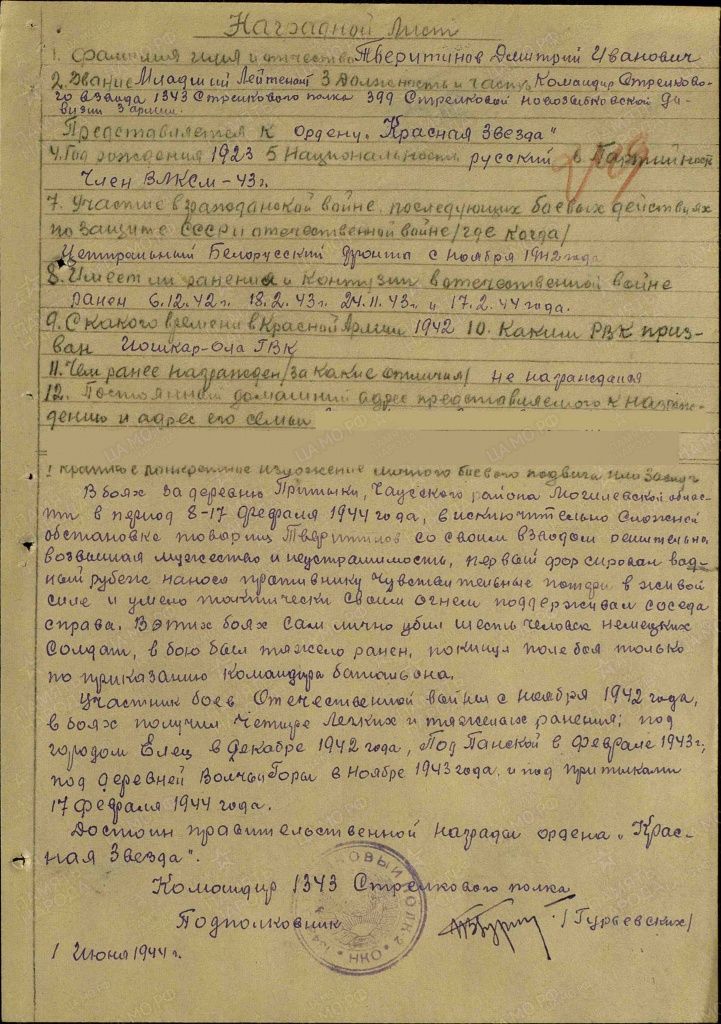 Наградной Лист
1. Фамилия имя и отчество Тверитинов Дмитрий Иванович
2. Звание Младший Лейтенант 3 Должность и часть Командир Стрелково-
го взвода 1343 Стрелкового полка 399 Стрелковой новозыбковской Ди-
визии 3 армии.
Представляется к ордену „Красная Звезда"
4. Год рождения 1923 5 Национальность русский 6 Партийность
Член ВЛКСМ - 43 г.
7. Участие в гражданской войне, последующих боевых действиях
по защите СССР и отечественной войне /где когда/
Центральный Белорусский фронта с ноября 1942 года
8. Имеет ли ранения и контузии в отечественной войне
Ранен 6.12.42 г. 18.2.43 г. 24.11.43 г. и 17.2.44 года.
9. С какого времени в Красной Армии 1942 10. Каким РВК приз-
ван Йошкар-Ола ГВК
11. Чем ранее награжден /за какие отличия/ не награждался
12. Постоянный домашний адрес представляемого к награж-
дению и адрес его семьи
1 краткое конкретное изложение личного боевого подвига или заслуг
В боях за деревню Прилыки, Чаусского района Могилевской облас-
ти в период 8-17 февраля 1944 года, в исключительно сложной
обстановке товарищ Тверитинов со своим взводом решительно
возвышая мужество и неустрашимость, первый форсировал вод-
ный рубеж нанося противнику чувствительные потери в живой
силе и умело тактически своим огнем поддерживал соседа
справа. В этих боях сам лично убил шесть человек немецких
солдат, в бою был тяжело ранен, покинул поле боя только
по приказанию командира батальона.
Участник боев Отечественной войны с ноября 1942 года,
в боях получил четыре легких и тяжелых ранения; под
городом Елец в декабре 1942 года, под Панской в феврале 1943 г;
под деревней Волчьи Горы в ноябре 1943 года и под Прилыками
17 февраля 1944 года.
Достоин правительственной награды ордена „Крас-
ная Звезда".
Командир 1343 Стрелкового полка
Подполковник /Гурьевских/
1 Июня 1944 г.